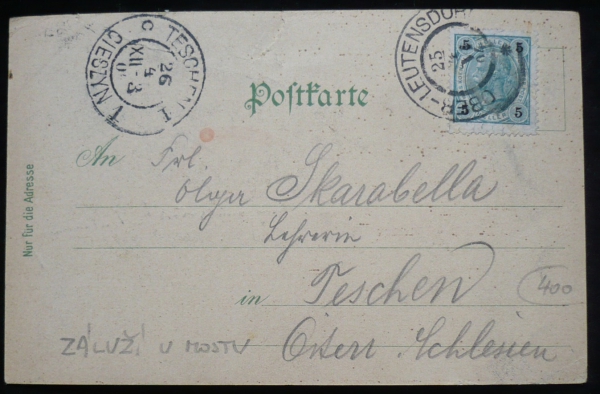 TESCHEN 1
CIESZYN 1
c
26
4
XII-3
OBER-LEUTENSDORF
25
5 5
5 5
Postkarte
Nur für die Adresse
An Frl.
Olga Skarabella
Lehrerin
in Teschen
400
ZÁLUŽÍ U MOSTU
Österr. Schlesien